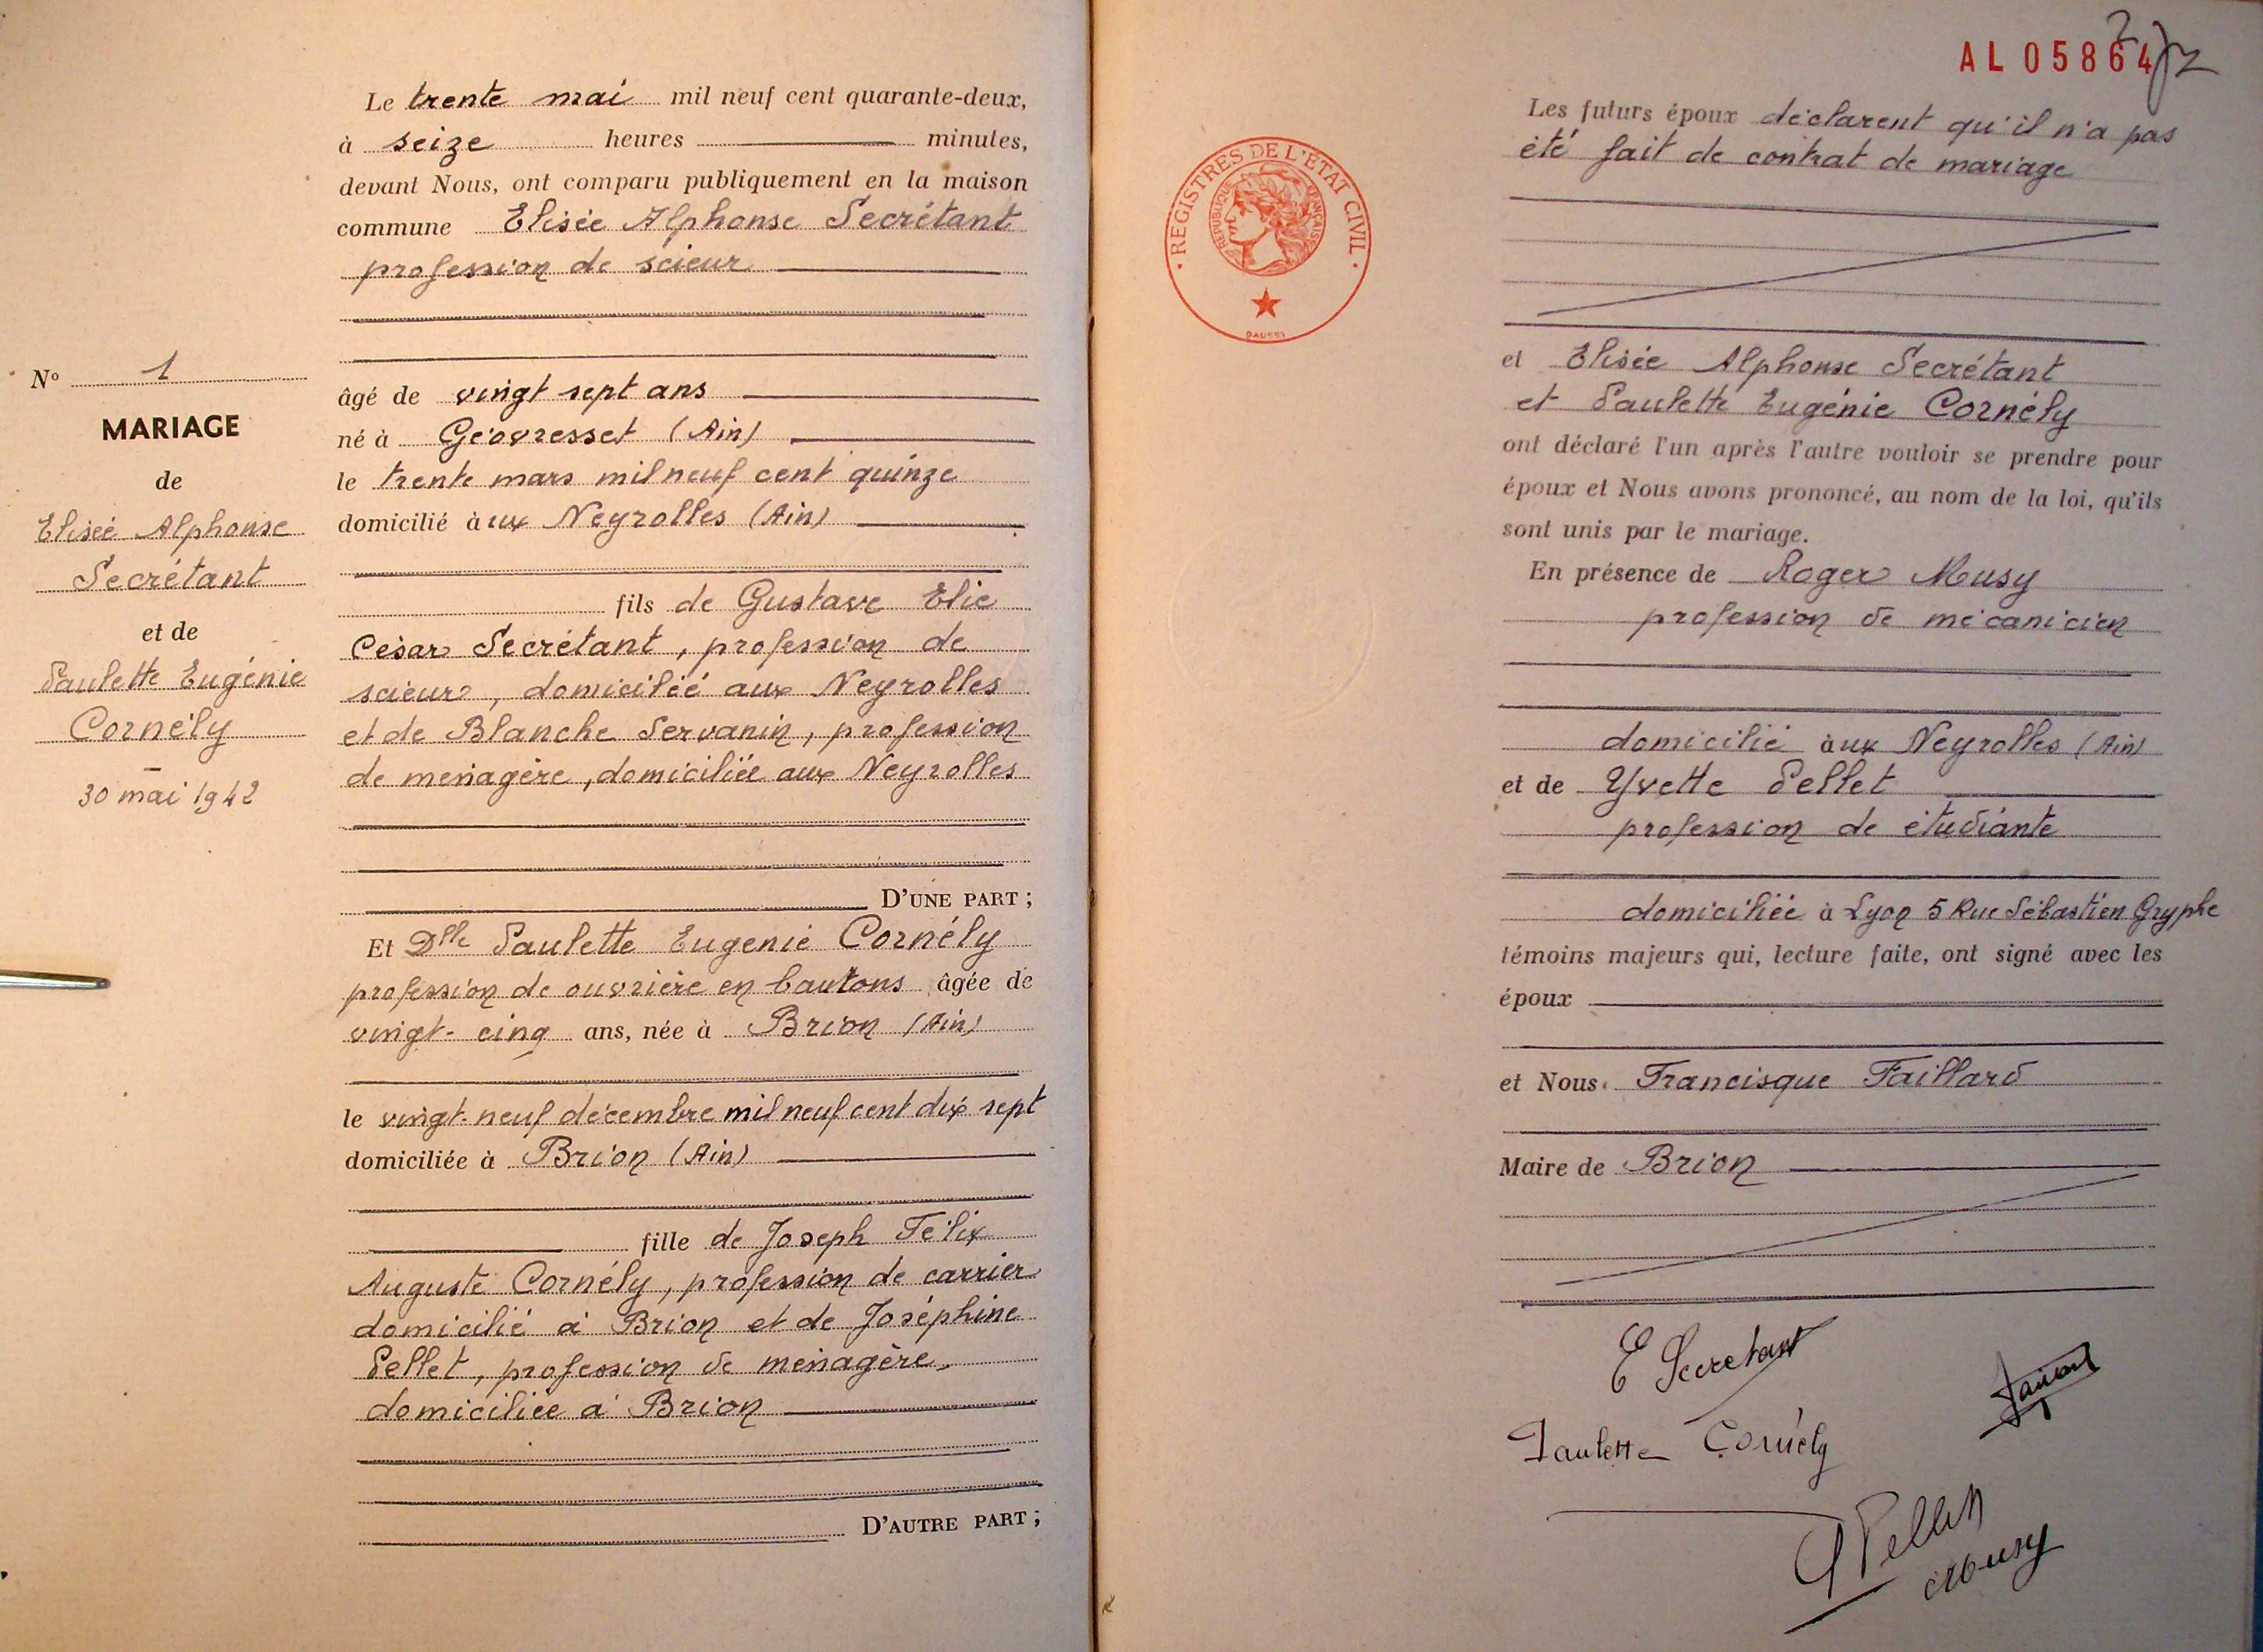 N° 1
MARIAGE
de
Elisée Alphonse
Secrétant
et de
Paulette Eugénie
Cornély
30 mai 1942
Le trente mai mil neuf cent quarante-deux,
à seize heures minutes,
devant Nous, ont comparu publiquement en la maison
commune Elisée Alphonse Secrétant
profession de scieur
âgé de vingt sept ans
né à Géovresset (Ain)
le trente mars mil neuf cent quinze
domicilié àux Neyrolles (Ain)
fils de Gustave Elie
César Secrétant, profession de
scieur, domicilié aux Neyrolles
et de Blanche Servanin, profession
de ménagère, domiciliée aux Neyrolles
D'UNE PART ;
Et Dlle Paulette Eugenie Cornély
profession de ouvrière en boutons âgée de
vingt-cinq ans, née à Brion (Ain)
le vingt-neuf décembre mil neuf cent dix sept
domiciliée à Brion (Ain)
fille de Joseph Félix
Auguste Cornély, profession de carrier
domicilié à Brion et de Joséphine
Pellet, profession de ménagère,
domiciliée à Brion
D'AUTRE PART ;
AL 05864
2
REGISTRES DE L'ÉTAT CIVIL
RÉPUBLIQUE FRANÇAISE
Les futurs époux déclarent qu'il n'a pas
été fait de contrat de mariage
et Elisée Alphonse Secrétant
et Paulette Eugénie Cornély
ont déclaré l'un après l'autre vouloir se prendre pour
époux et Nous avons prononcé, au nom de la loi, qu'ils
sont unis par le mariage.
En présence de Roger Musy
profession de mécanicien
domicilié àux Neyrolles (Ain)
et de Yvette Pellet
profession de étudiante
domiciliée à Lyon 5 Rue Sébastien Gryphe
témoins majeurs qui, lecture faite, ont signé avec les
époux
et Nous Francisque Faillard
Maire de Brion
E Secretant
Paulette Cornély
Pellet
Musy